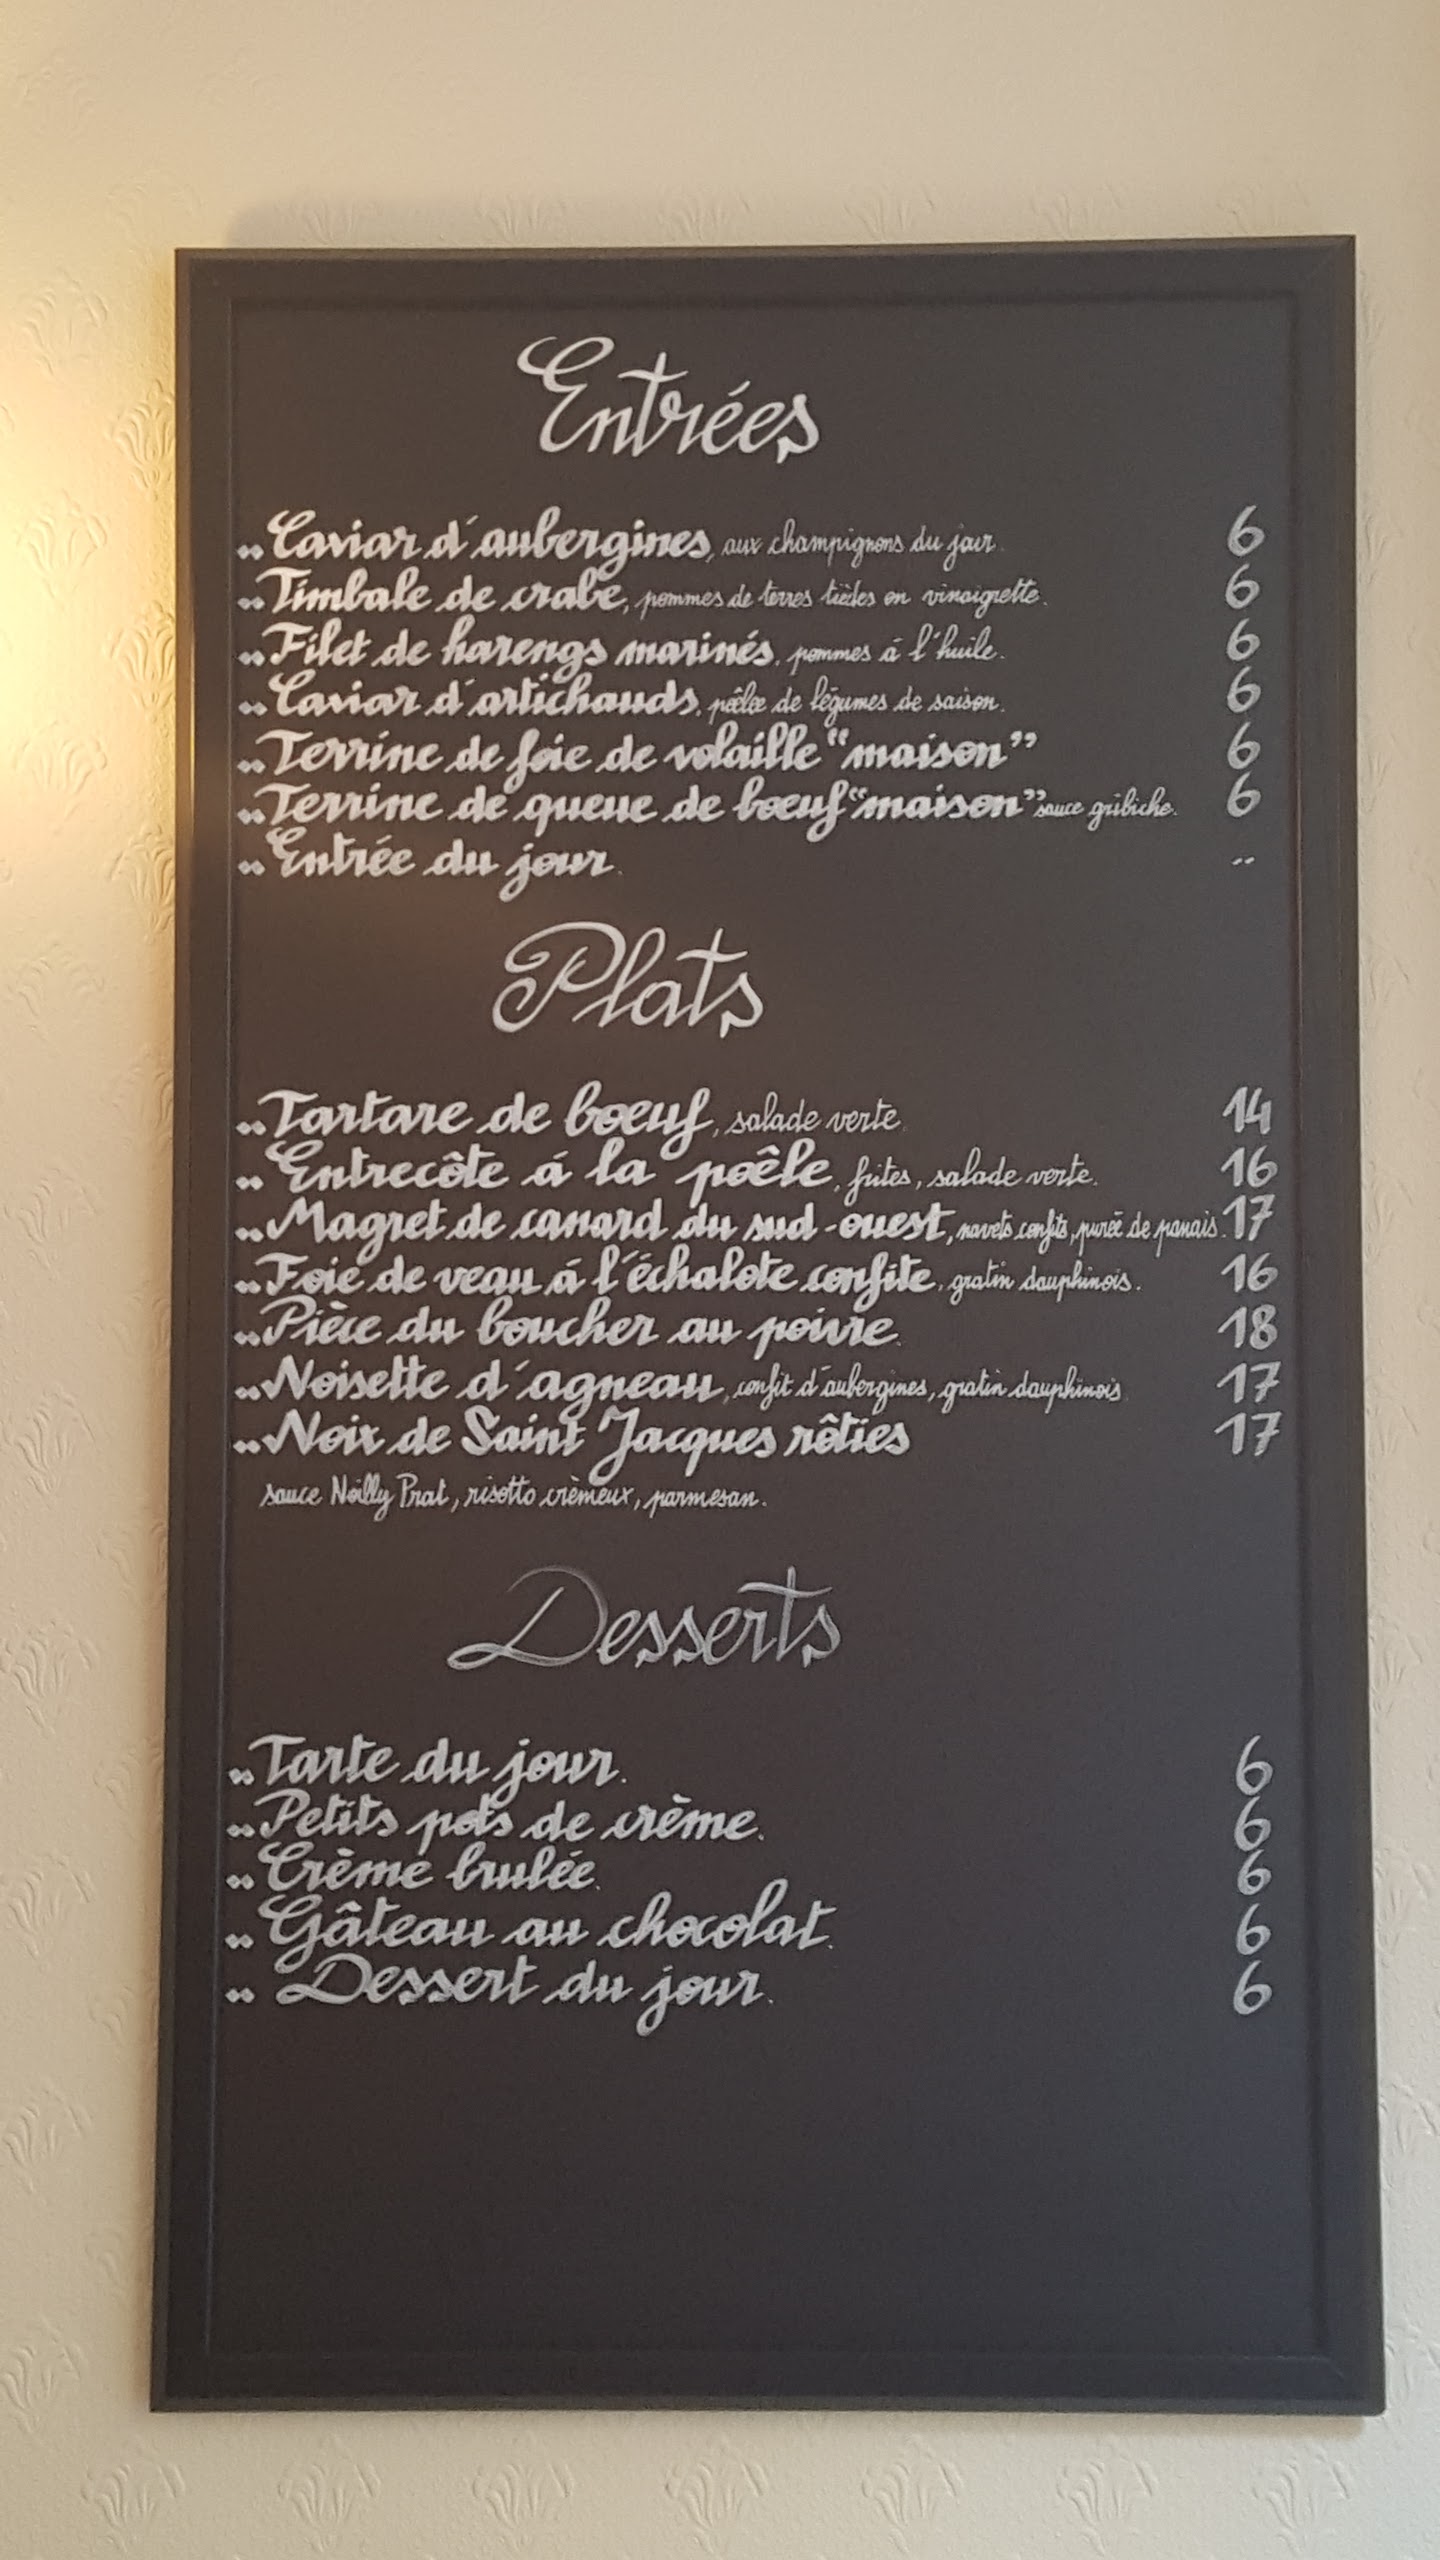 Entrées
.. Caviar d'aubergines, aux champignons du jour. 6
.. Timbale de crabe, pommes de terres tièdes en vinaigrette. 6
.. Filet de harengs marinés, pommes à l'huile. 6
.. Caviar d'artichauds, poêlée de légumes de saison. 6
.. Terrine de foie de volaille "maison" 6
.. Terrine de queue de bœuf "maison" sauce gribiche. 6
.. Entrée du jour. ..
Plats
.. Tartare de bœuf, salade verte. 14
.. Entrecôte á la poêle, frites, salade verte. 16
.. Magret de canard du sud-ouest, navets confits, purée de panais. 17
.. Foie de veau á l'échalote confite, gratin dauphinois. 16
.. Pièce du boucher au poivre. 18
.. Noisette d'agneau, confit d'aubergines, gratin dauphinois 17
.. Noix de Saint Jacques rôties 17
sauce Noilly Prat, risotto crèmeux, parmesan.
Desserts
.. Tarte du jour. 6
.. Petits pots de crème. 6
.. Crème brulée. 6
.. Gâteau au chocolat. 6
.. Dessert du jour. 6